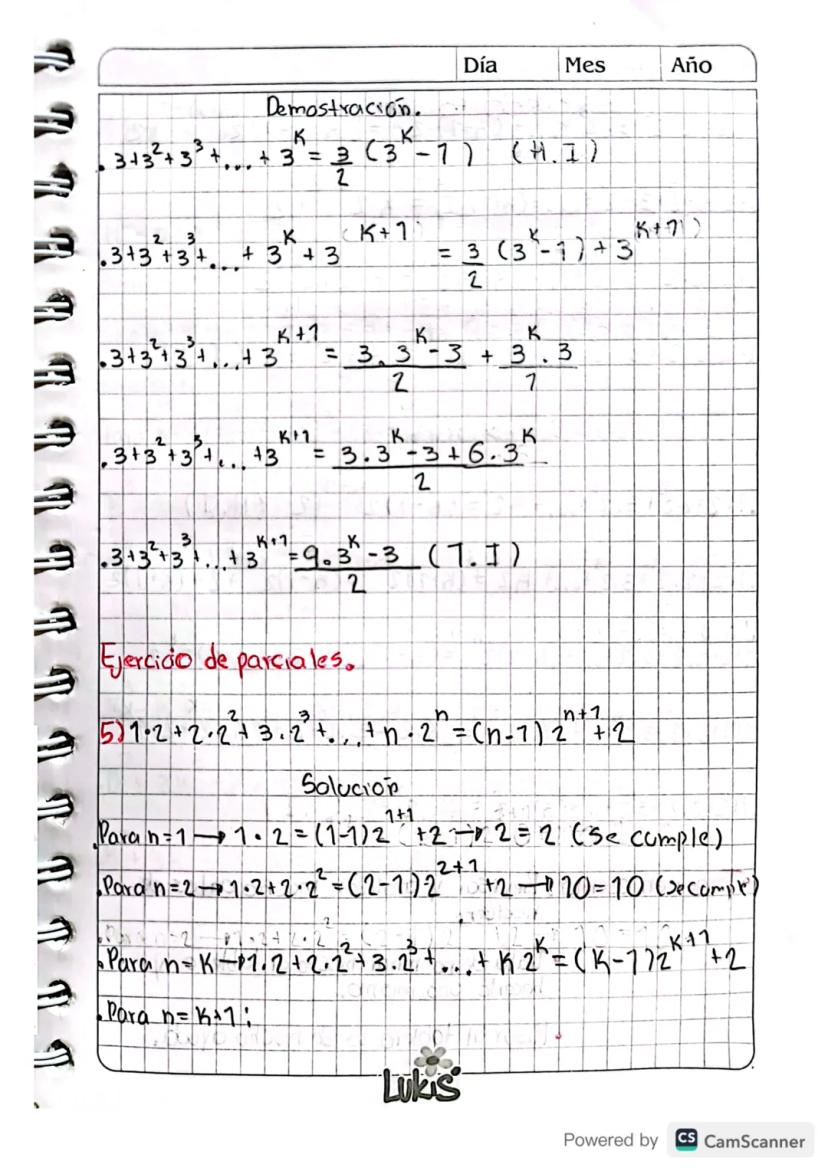 Día Mes Año
Demostración.
. 3+3²+3³+...+ 3^K = 3/2 (3^K - 1) (H.I)
. 3+3²+3³+...+ 3^K + 3^(K+1) = 3/2 (3^K - 1) + 3^(K+1)
. 3+3²+3³+...+ 3^(K+1) = (3.3^K - 3)/2 + (3^K . 3)/1
. 3+3²+3³+...+3^(K+1) = (3.3^K - 3 + 6.3^K)/2
. 3+3²+3³+...+3^(K+1) = (9.3^K - 3)/2 (T.I)
Ejercicio de parciales.
5) 1·2+2·2²+3.2³+...+n·2^n = (n-1)2^(n+1)+2
Solución
.Para n=1 → 1·2 = (1-1)2^(1+1) +2 → 2 = 2 (Se cumple)
.Para n=2 → 1·2+2·2² = (2-1)2^(2+1) +2 → 10=10 (Se cumple)
.Para n=K → 1·2+2·2²+3·2³+...+K2^K = (K-1)2^(K+1) +2
.Para n=K+1:
LUKIS
Powered by CS CamScanner